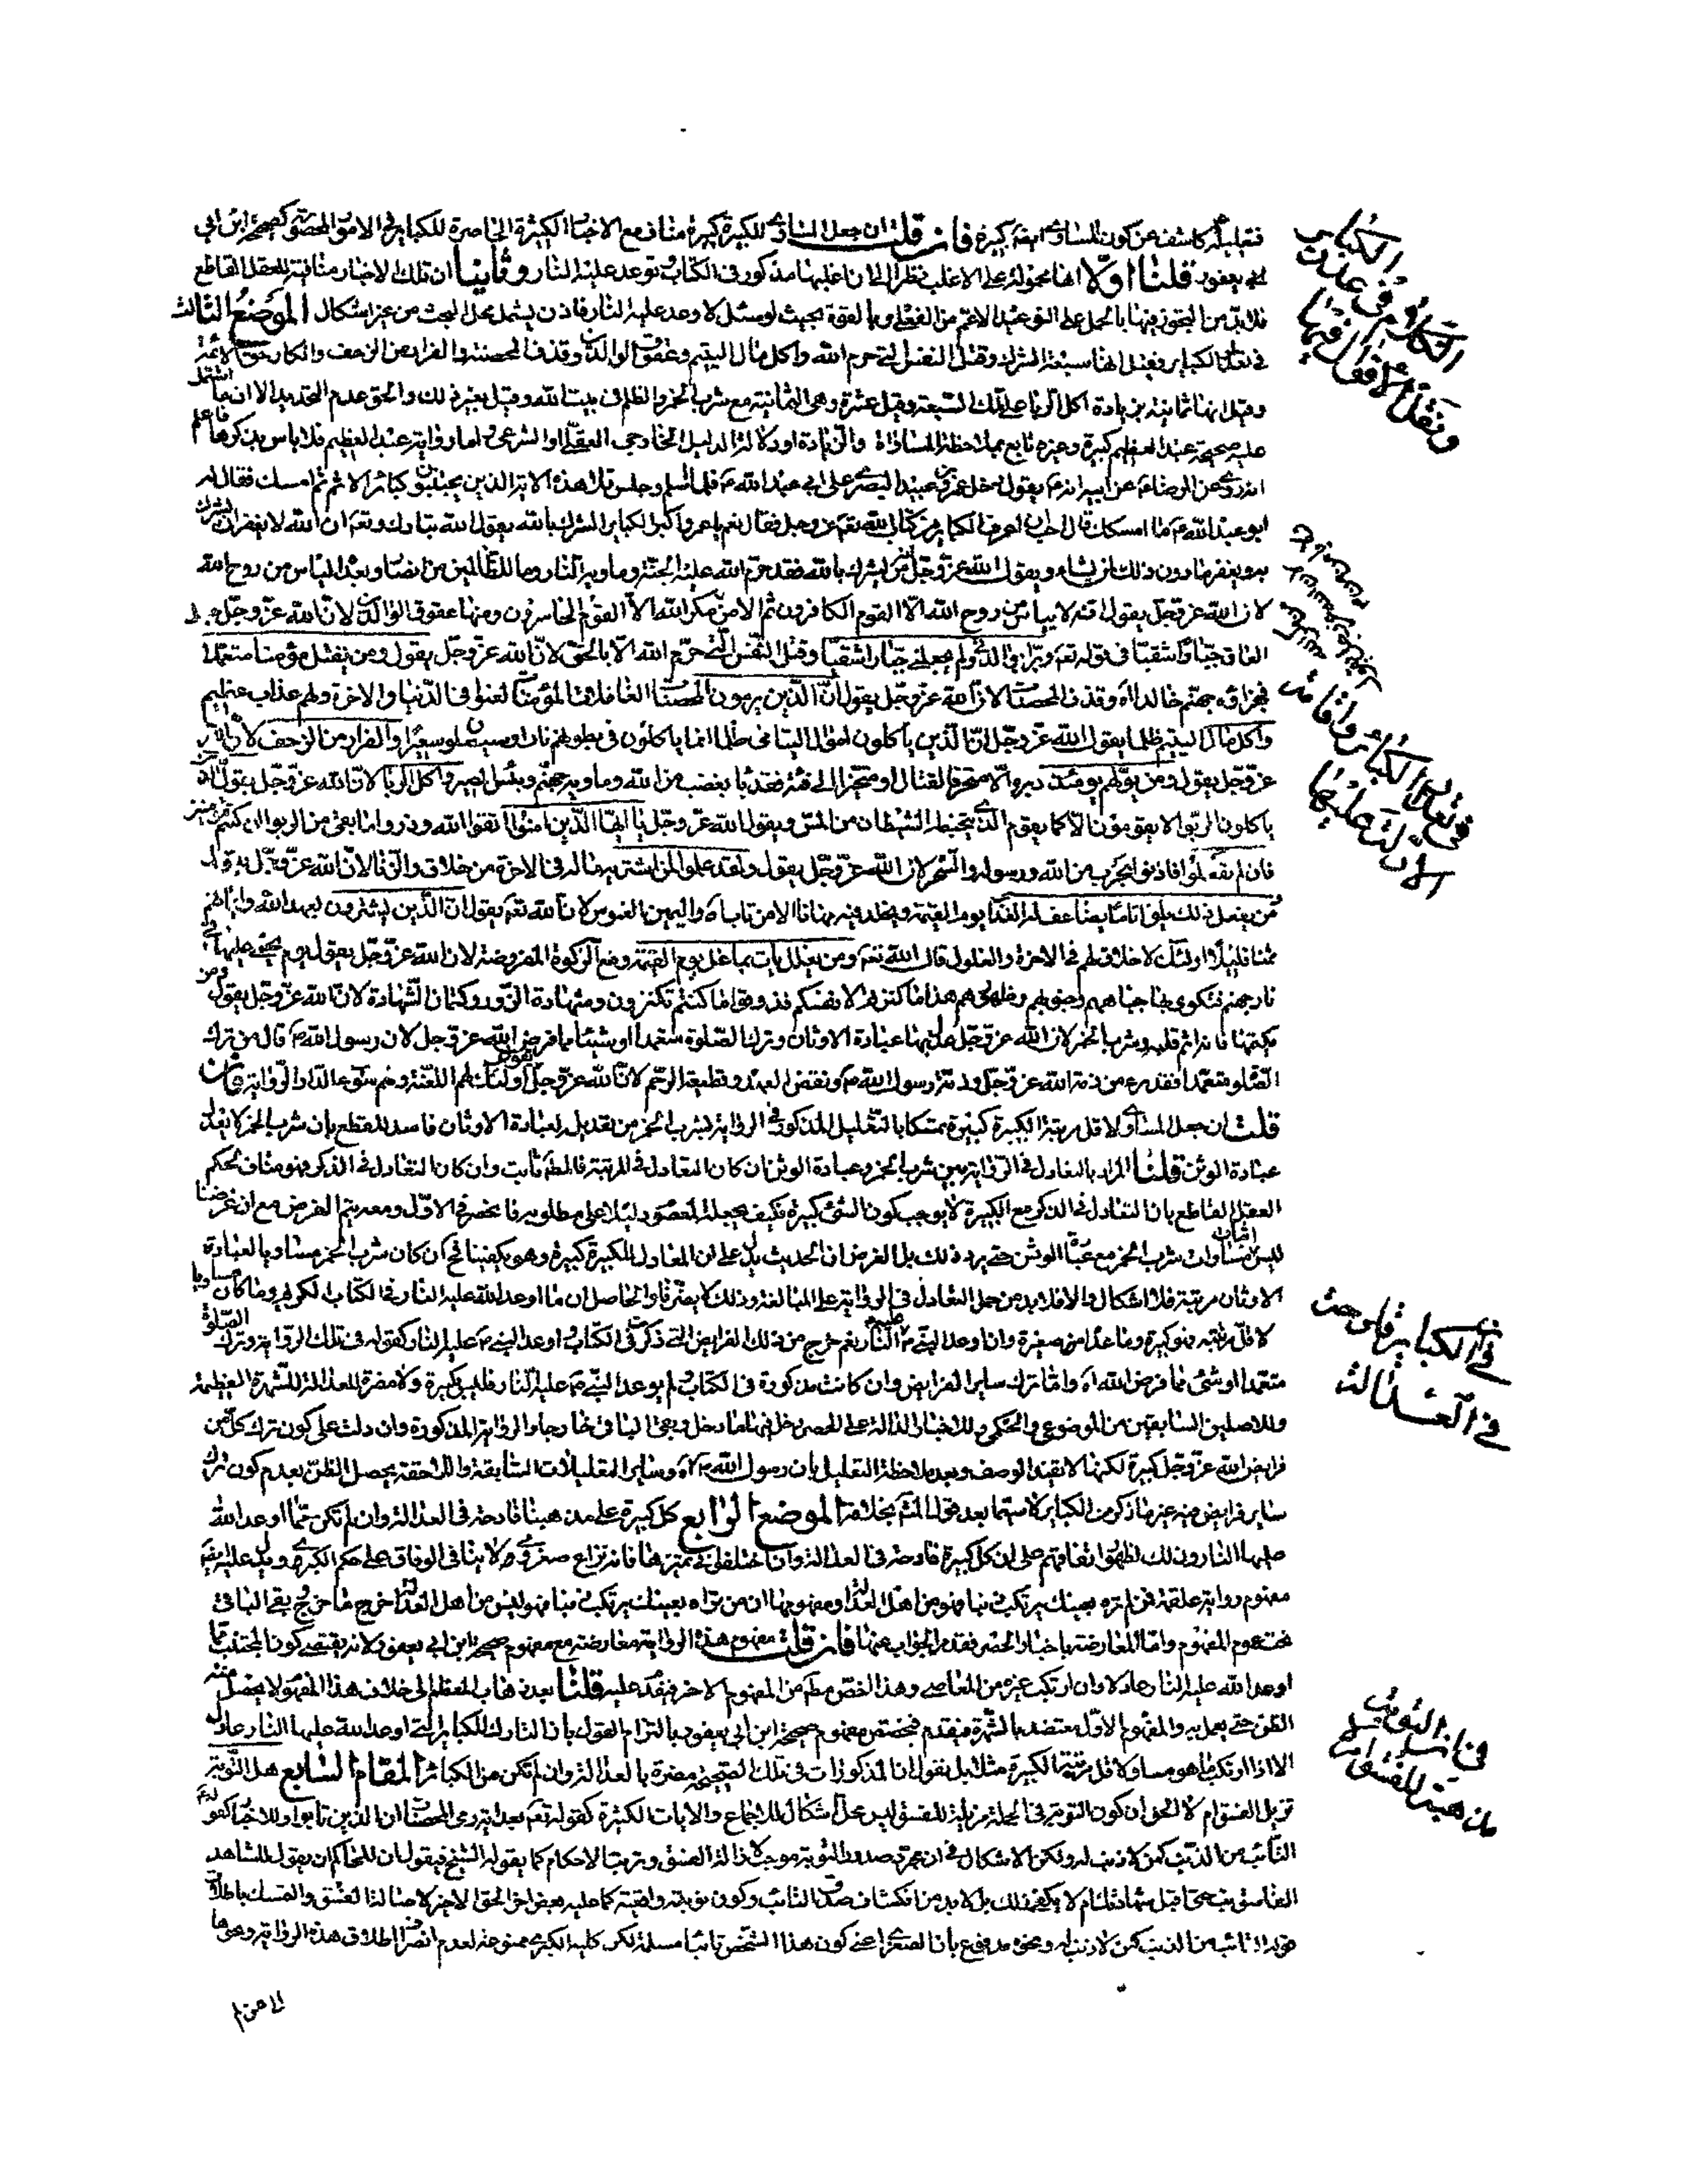 فتعليله كاشف عن كون المساوى ايضا كبيرة فان قلت ان جعل المساوى للكبيرة كبيرة مناف مع الاخبار الكثيرة الحاصرة للكباير فى الامور المخصوصة كصحيحة ابن ابى
ابى يعفور قلنا اولا انها محمولة على الاغلب نظرا الى ان اغلبها مذكور فى الكتاب توعد عليه النار وثانيا ان تلك الاخبار منافية للعقل القاطع
فلابد من التجوز فيها بالحمل على التوعيد الاعم من الفعلى وبالقوة بحيث لو سئل لاوعد عليه النار فاذن يشتمل محل البحث من غير اشكال الموضع الثالث
فى تعداد الكباير فقيل انها سبعة الشرك وقتل النفس التى حرم الله واكل مال اليتيم وعقوق الوالدين وقذف المحصنة والفرار من الزحف وانكار حق الائمة
وقيل انها ثمانية بزيادة اكل الربا على تلك السبعة وقيل عشرة وهى الثمانية مع شرب الخمر والظلم فى بيت الله وقيل بغير ذلك والحق عدم التحديد الا ان ما اشتمل
عليه صحيحة عبد العظيم كبيرة وغيره تابع بملاحظة المساواة والزيادة او دلالة الدليل الخارجى العقلى او الشرعى اما رواية عبد العظيم فلا باس بذكرها فاعلم
انه روى عن الرضا ع عن ابيه انه ع يقول دخل عمرو بن عبيد البصرى على ابى عبد الله ع فلما سلم وجلس تلا هذه الاية الذين يجتنبون كبائر الاثم ثم امسك فقال له
ابو عبد الله ع ما امسكك قال احب ان اعرف الكباير من كتاب الله تعم عز وجل فقال نعم يا عمرو اكبر الكباير الشرك بالله يقول الله تبارك وتعم ان الله لا يغفر ان يشرك
به ويغفر ما دون ذلك لمن يشاء ويقول الله عز وجل من يشرك بالله فقد حرم الله عليه الجنة وماويه النار وما للظالمين من انصار وبعد الياس من روح الله
لان الله عز وجل يقول انه لا يياس من روح الله الا القوم الكافرون ثم الامن من مكر الله الا القوم الخاسرون ومنها عقوق الوالدين لان الله عز وجل جعل
العاق جبارا شقيا فى قوله تعم وبرا بوالدتى ولم يجعلنى جبارا شقيا وقتل النفس التى حرم الله الا بالحق لان الله عز وجل يقول ومن يقتل مؤمنا متعمدا
فجزاؤه جهنم خالدا اه وقذف المحصنات لان الله عز وجل يقول ان الذين يرمون المحصنات الغافلات المؤمنات لعنوا فى الدنيا والاخرة ولهم عذاب عظيم
واكل مال اليتيم ظلما يقول الله عز وجل ان الذين ياكلون اموال اليتامى ظلما انما ياكلون فى بطونهم نارا وسيصلون سعيرا والفرار من الزحف لان الله
عز وجل يقول ومن يولهم يومئذ دبره الا متحرفا لقتال او متحيزا الى فئة فقد باء بغضب من الله وماويه جهنم وبئس المصير واكل الربا لان الله عز وجل يقول الذين
ياكلون الربوا لا يقومون الا كما يقوم الذى يتخبطه الشيطان من المس ويقول الله عز وجل يا ايها الذين امنوا اتقوا الله وذروا ما بقى من الربوا ان كنتم مؤمنين
فان لم تفعلوا فاذنوا بحرب من الله ورسوله والسحر لان الله عز وجل يقول ولقد علموا لمن اشتريه ماله فى الاخرة من خلاق والزنا لان الله عز وجل يقول
ومن يفعل ذلك يلق اثاما يضاعف له العذاب يوم القيمة ويخلد فيه مهانا الا من تاب اه واليمين الغموس لان الله تعم يقول ان الذين يشترون بعهد الله وايمانهم
ثمنا قليلا اولئك لا خلاق لهم فى الاخرة والغلول قال الله تعم ومن يغلل يات بما غل يوم القيمة ومنع الزكوة المفروضة لان الله عز وجل يقول يوم يحمى عليها فى
نار جهنم فتكوى بها جباههم وجنوبهم وظهورهم هذا ما كنزتم لانفسكم فذوقوا ما كنتم تكنزون وشهادة الزور وكتمان الشهادة لان الله عز وجل يقول ومن
يكتمها فانه اثم قلبه وشرب الخمر لان الله عز وجل عدل بها عبادة الاوثان وترك الصلوة متعمدا او شيئا مما فرض الله عز وجل لان رسول الله ص قال من ترك
الصلوة متعمدا فقد برء من ذمة الله عز وجل وذمة رسول الله ص ونقض العهد وقطيعة الرحم لان الله عز وجل يقول اولئك لهم اللعنة ولهم سوء الدار الرواية فان
قلت ان جعل المساوى لاقل مرتبة الكبيرة كبيرة متمسكا بالتعليل المذكور فى الرواية لشرب الخمر من تعديله لعبادة الاوثان فاسد للقطع بان شرب الخمر لا يعدل
عبادة الوثن قلنا المراد بالتعادل فى الرواية بين شرب الخمر وعبادة الوثن ان كان التعادل فى المرتبة فالمط ثابت وان كان التعادل فى الذكر فهو مناف لحكم
العقل القاطع بان التعادل فى الذكر مع الكبيرة لا يوجب كون الشئ كبيرة فكيف يجعله المعصوم دليلا على مطلوبه فانحصر فى الاول ومعه يتم الغرض مع ان غرضنا
ليس اثبات مساوات شرب الخمر مع عبادة الوثن حتى يرد ذلك بل الغرض ان الحديث يدل على ان المعادل للكبيرة كبيرة وهو يكفينا فح ان كان شرب الخمر مساويا لعبادة
الاوثان مرتبة فلا اشكال والا فلابد من حمل التعادل فى الرواية على المبالغة وذلك لا يضرنا والحاصل ان ما اوعد الله عليه النار فى الكتاب الكريم وما كان مساويا
لاقل مرتبة منه كبيرة وما عداه صغيرة وان اوعد النبى ص عليه النار نعم خرج من ذلك الفرايض التى ذكرت فى الكتاب او اوعد النبى ص عليه النار كقوله فى تلك الرواية وترك الصلوة
متعمدا او شئ مما فرض الله اه واما ترك ساير الفرايض وان كانت مذكورة فى الكتاب ولم يوعد النبى ص عليه النار فليس بكبيرة ولا مضرة للعدالة للشهرة العظيمة
وللاصلين السابقين من الموضوعى والحكمى وللاخبار الدالة على الحصر دخل فيها ما دخل وبقى الباقى خارجا والرواية المذكورة وان دلت على كون ترك كل من
فرايض الله عز وجل كبيرة لكنها لا تفيد الوصف وبعد ملاحظة التعليل بان رسول الله ص اه وساير التعليلات السابقة واللاحقة يحصل الظن بعدم كون ترك
ساير فرايض منه غير ما ذكر من الكباير لا سيما بعد قول المشهور بخلافه الموضع الرابع كل كبيرة على مذهبنا قادحة فى العدالة وان لم تكن مما اوعد الله
عليها النار وذلك لظهور اتفاقهم على ان كل كبيرة قادحة فى العدالة وان اختلفوا فى تميزها فانه نزاع صغروى ولا ينافى الوفاق على حكم الكبرى ويدل عليه ايضا
مفهوم رواية علقمة فمن لم تره بعينك يرتكب ذنبا فهو من اهل العدالة ومفهومها ان من تراه بعينك يرتكب ذنبا فهو ليس من اهل العدالة خرج ما خرج بقى الباقى
تحت عموم المفهوم واما المعارضة باخبار الحصر فقد مر الجواب عنها فان قلت مفهوم هذه الرواية معارضة مع مفهوم صحيحة ابن ابى يعفور لانه يقتضى كون المجتنب عما
اوعد الله عليه النار عادلا وان ارتكب غيره من المعاصى وهذا اخص مط من المفهوم الاخر فيقدم عليه قلنا بعد ذهاب المعظم الى خلاف هذا المفهوم لا يحصل منه
الظن حتى يعمل به والمفهوم الاول معتضد بالشهرة فيقدم فيخصص مفهوم صحيحة ابن ابى يعفور بالتزام القول بان التارك للكباير التى اوعد الله عليها النار عادل
الا اذا ارتكب ما هو مساو لاقل مرتبة الكبيرة مثلا بل نقول ان المذكورات فى تلك الصحيحة مضرة بالعدالة وان لم تكن من الكبائر المقام السابع هل التوبة
تزيل الفسق ام لا الحق ان كون التوبة فى الجملة مزيلة للفسق ليس محل اشكال للاجماع والايات الكثيرة كقوله تعم بعد اية رمى المحصنات الا الذين تابوا وللاخبار كقوله ع
التائب من الذنب كمن لا ذنب له ولكن الاشكال فى ان مجرد صدور التوبة موجب لازالة الفسق وترتب الاحكام كما يقوله الشيخ فيقول ان للحاكم ان يقول للشاهد
الفاسق تب حتى اقبل شهادتك ام لا يكفى ذلك بل لابد من انكشاف صدق التائب وكون توبته واقعية كما عليه بعض اخر الحق الاخير لاصالة الفسق والتمسك باطلاق
قوله التائب من الذنب كمن لا ذنب له ونحوه مدفوع بان الصغرى اعنى كون هذا الشخص تائبا مسلمة لكن كلية الكبرى ممنوعة لعدم انصراف اطلاق هذه الرواية ونحوها
الكباير
ونقل الاقوال فيها
فى تعداد الكبائر
الادلة عليها
فى ان الكباير قادحة
فى العدالة
فى ان التوبة
مذهبة للفسق ام